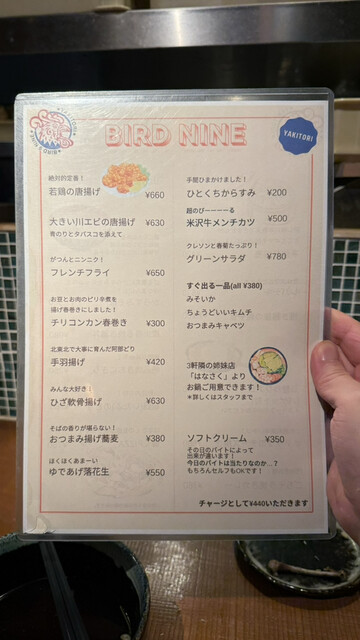 BIRD NINE
YAKITORI
絶対的定番！
若鶏の唐揚げ ¥660
大きい川エビの唐揚げ ¥630
青のりとタバスコを添えて
がつんとニンニク！
フレンチフライ ¥650
お豆とお肉のピリ辛煮を
揚げ春巻きにしました！
チリコンカン春巻き ¥300
北東北で大事に育んだ阿部どり
手羽揚げ ¥420
みんな大好き！
ひざ軟骨揚げ ¥630
そばの香りが堪らない！
おつまみ揚げ蕎麦 ¥380
ほくほくあまーい
ゆであげ落花生 ¥550
手間ひまかけました！
ひとくちからすみ ¥200
超のびーーーーる
米沢牛メンチカツ ¥500
クレソンと春菊たっぷり！
グリーンサラダ ¥780
すぐ出る一品(all ¥380)
みそいか
ちょうどいいキムチ
おつまみキャベツ
3軒隣の姉妹店
「はなさく」より
お鍋ご用意できます！
＊詳しくはスタッフまで
ソフトクリーム ¥350
その日のバイトによって
出来が違います！
今日のバイトは当たりなのか…？
もちろんセルフもOKです！
チャージとして¥440いただきます